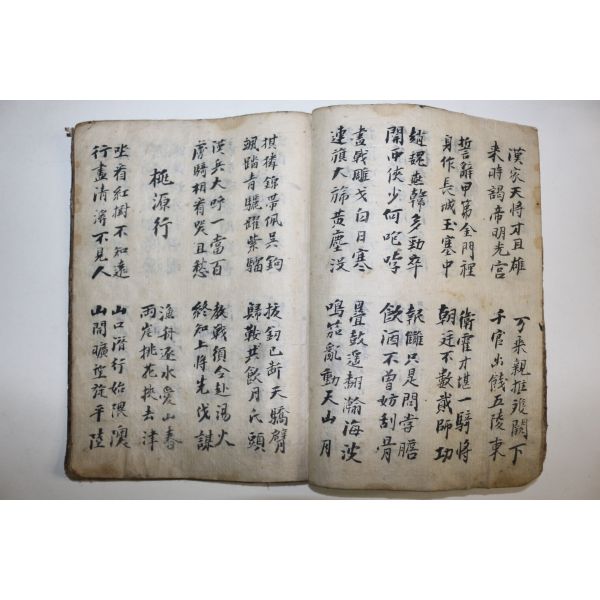 漢家天將才且雄
来時謁帝明光宮
万乘親推雙闕下
千官出餞五陵東
誓辭甲第金門裡
身作長城玉塞中
衛霍才堪一騎將
朝廷不數貳師功
趙魏燕韓多勁卒
関西俠少何咆哱
報讎只是聞嘗膽
飲酒不曾妨刮骨
畫戟雕戈白日寒
連旗大旆黃塵沒
疊鼓遙翻瀚海波
鳴笳亂動天山月
錦帶佩吳鉤
颯踏青驪躍紫騮
拔釼已斷天驕臂
歸鞍共飲月氏頭
漢兵大呼一當百
虜騎相看哭且愁
教戰須令赴湯火
終知上將先伐謀
桃源行
漁舟逐水愛山春
兩岸桃花挾去津
坐看紅樹不知遠
行盡清溪不見人
山口潛行始隈澳
山開曠望旋平陸